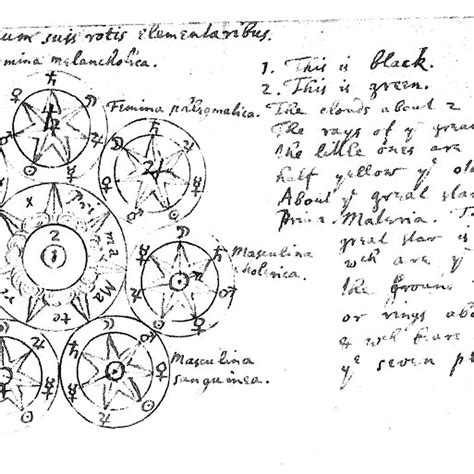 um suis rotis elementaribus.
mina melancholica.
Femina phlegmatica.
x Pri ma Ma te
2
1
Masculina
cholerica.
Masculina
sanguinea.
1. This is black.
2. This is green.
The clouds about 2
The rays of ye grea
the little ones are
half yellow ye ol
About ye great sta
Prima Materia. T
great star is
wch are ye
the ground
or rings abo
& wch are
ye seven p